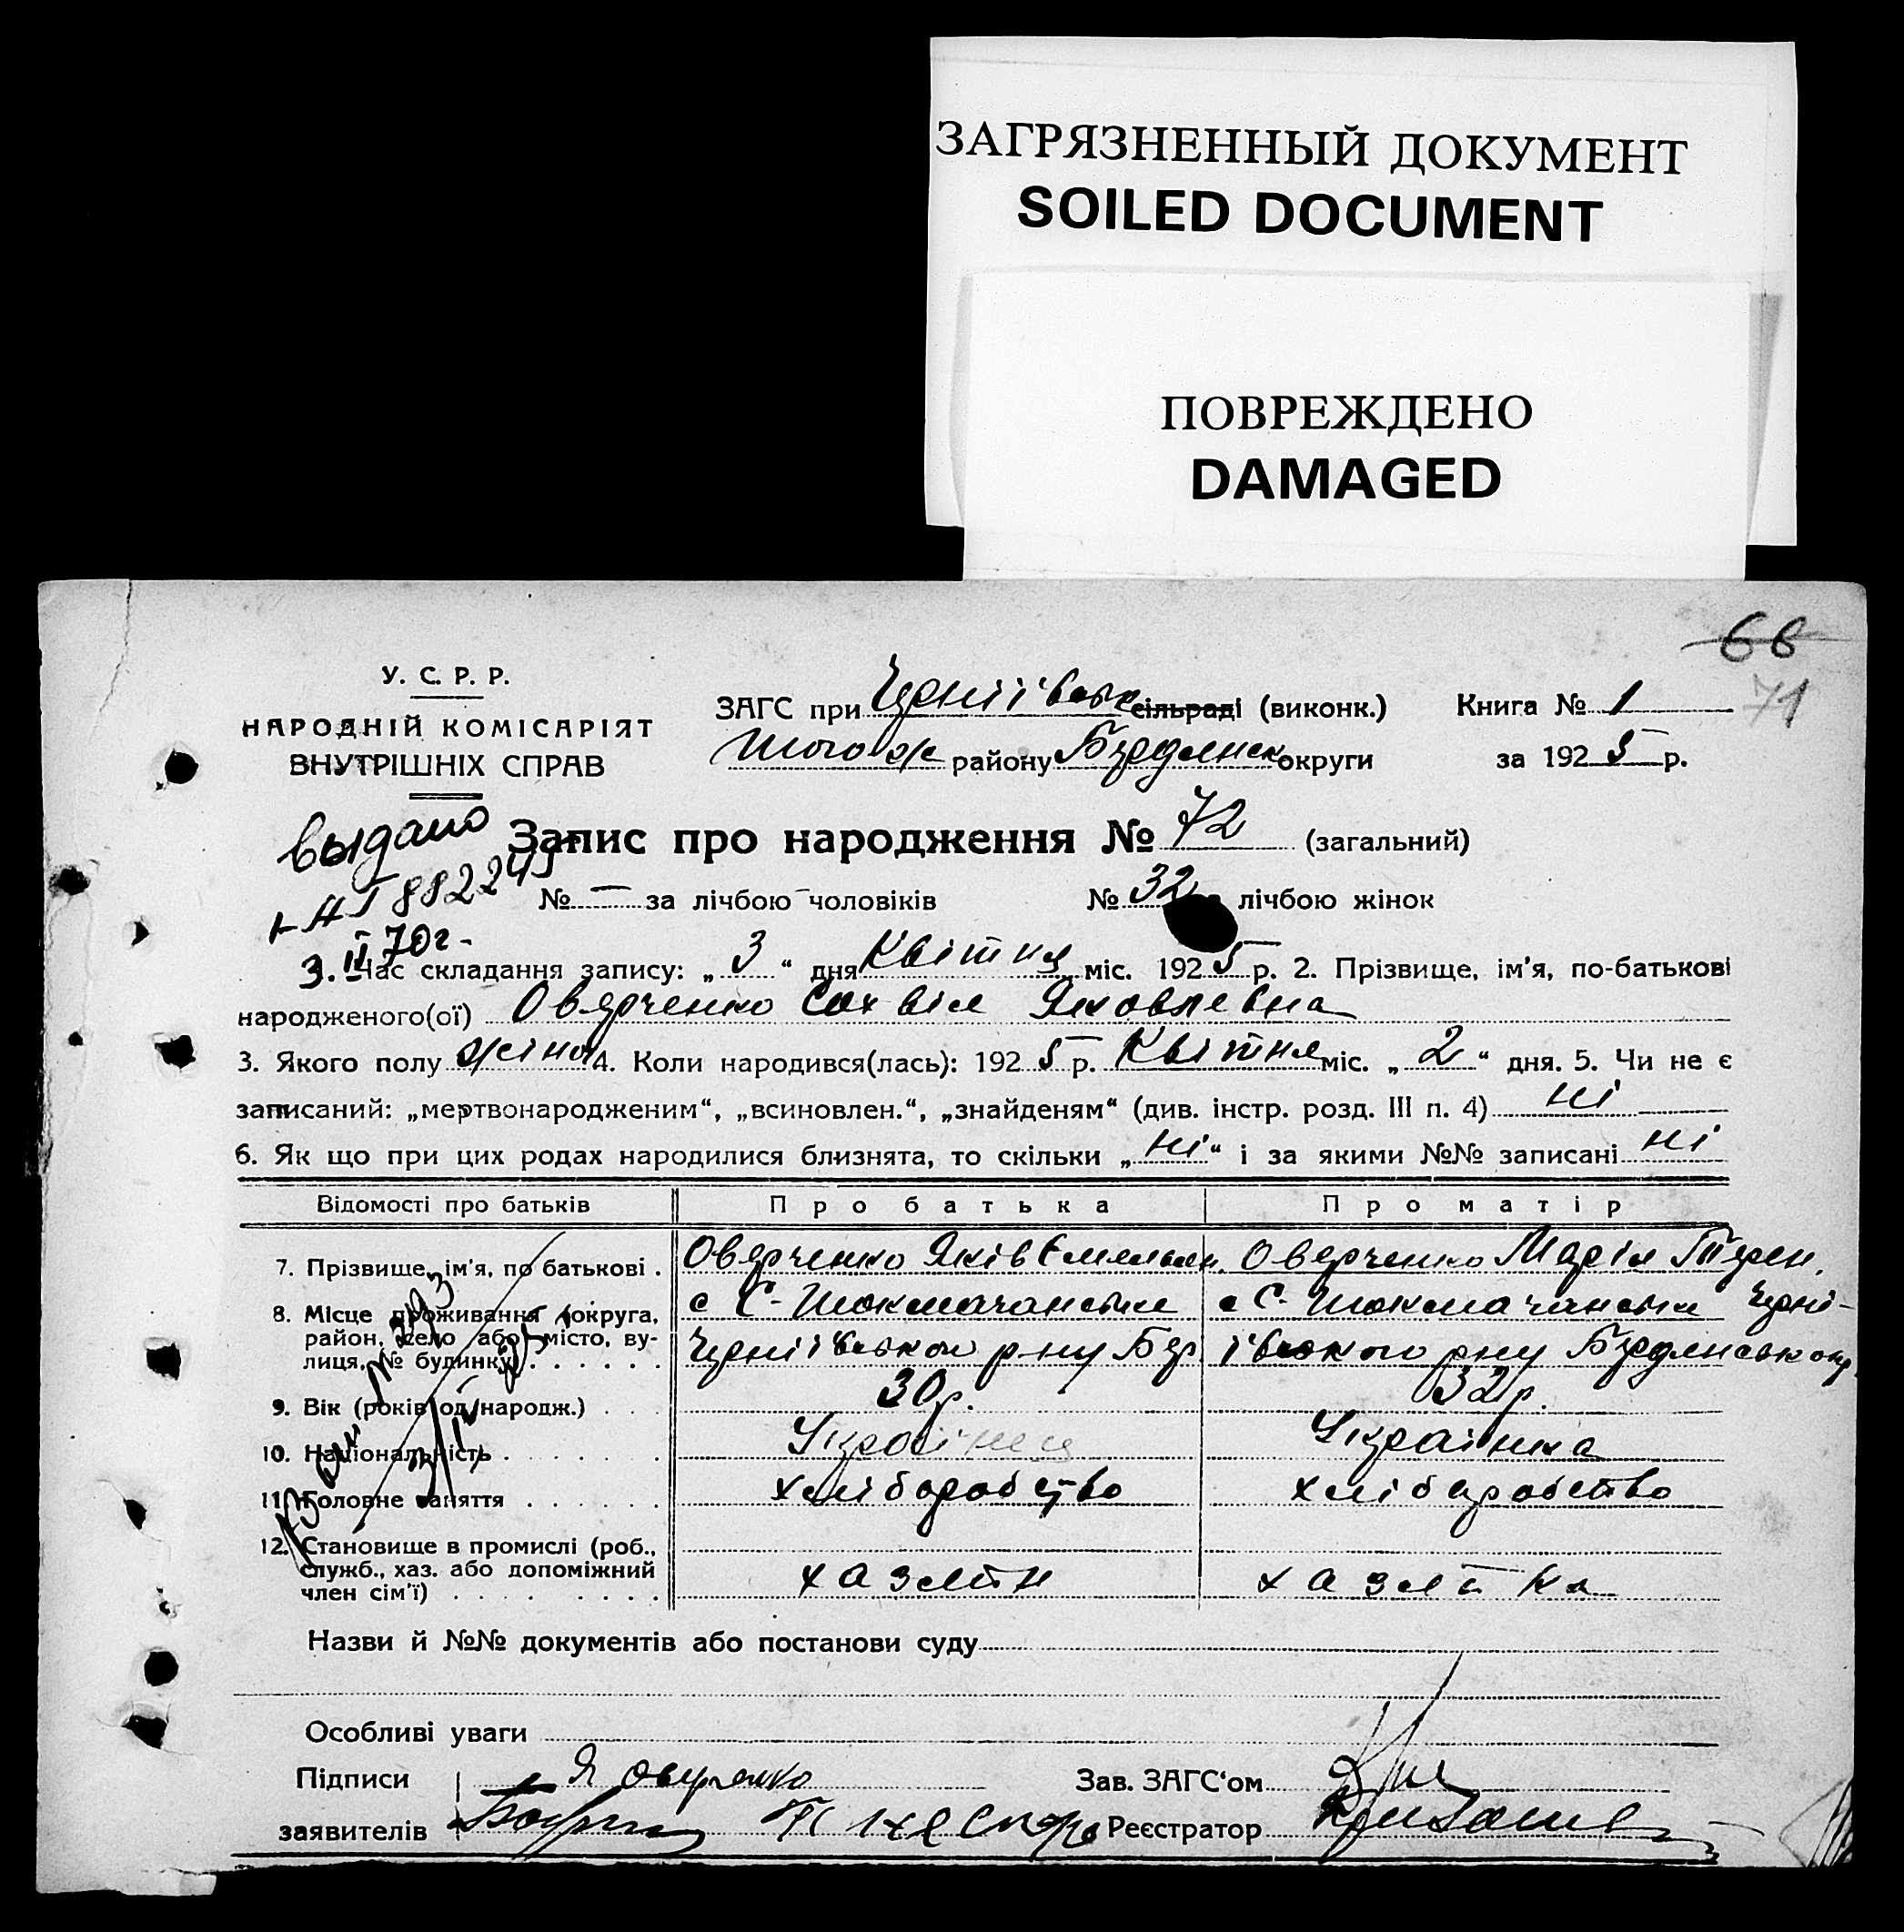 ЗАГРЯЗНЕННЫЙ ДОКУМЕНТ
SOILED DOCUMENT
ПОВРЕЖДЕНО
DAMAGED
66
71
У. С. Р. Р.
НАРОДНІЙ КОМІСАРІЯТ
ВНУТРІШНІХ СПРАВ
ЗАГС при Черніівськ сільраді (виконк.) Книга № 1
того ж району Бердянск округи за 1925 р.
выдано
Запис про народження № 72 (загальний)
№ — за лічбою чоловіків № 32 лічбою жінок
3. II 70г.
Час складання запису: „3“ дня Квітня міс. 1925 р. 2. Прізвище, ім'я, по-батькові
народженого(ої) Оверченко Сохвія Яковлевна
3. Якого полу жіноч 4. Коли народився(лась): 1925 р. Квітня міс. „2“ дня. 5. Чи не є
записаний: „мертвонародженим“, „всиновлен.“, „знайденям“ (див. інстр. розд. III п. 4) ні
6. Як що при цих родах народилися близнята, то скільки „ні“ і за якими №№ записані ні
Відомості про батьків Про батька Про матір
7. Прізвище, ім'я, по батькові . Оверченко Яків Емельян. Оверченко Марія Терен.
8. Місце проживання (округа, с С-Токмачанськи с С-Токмачанськи Черні-
район, село або місто, ву- Черніівського р-ну Бер. івського рну Бердянськ окр.
лиця, № будинку) . . . . . .
9. Вік (років од народж.) . . . 30 р. 32 р.
10. Національність . . . . . . . Українец Українка
11. Головне заняття . . . . . . хліборобство хліборобство
12. Становище в промислі (роб.,
служб., хаз. або допоміжний хазяін хазяйка
член сім'ї) . . . . . . . .
Назви й №№ документів або постанови суду
Особливі уваги
Підписи Я Оверченко Зав. ЗАГС'ом
заявителів Реєстратор